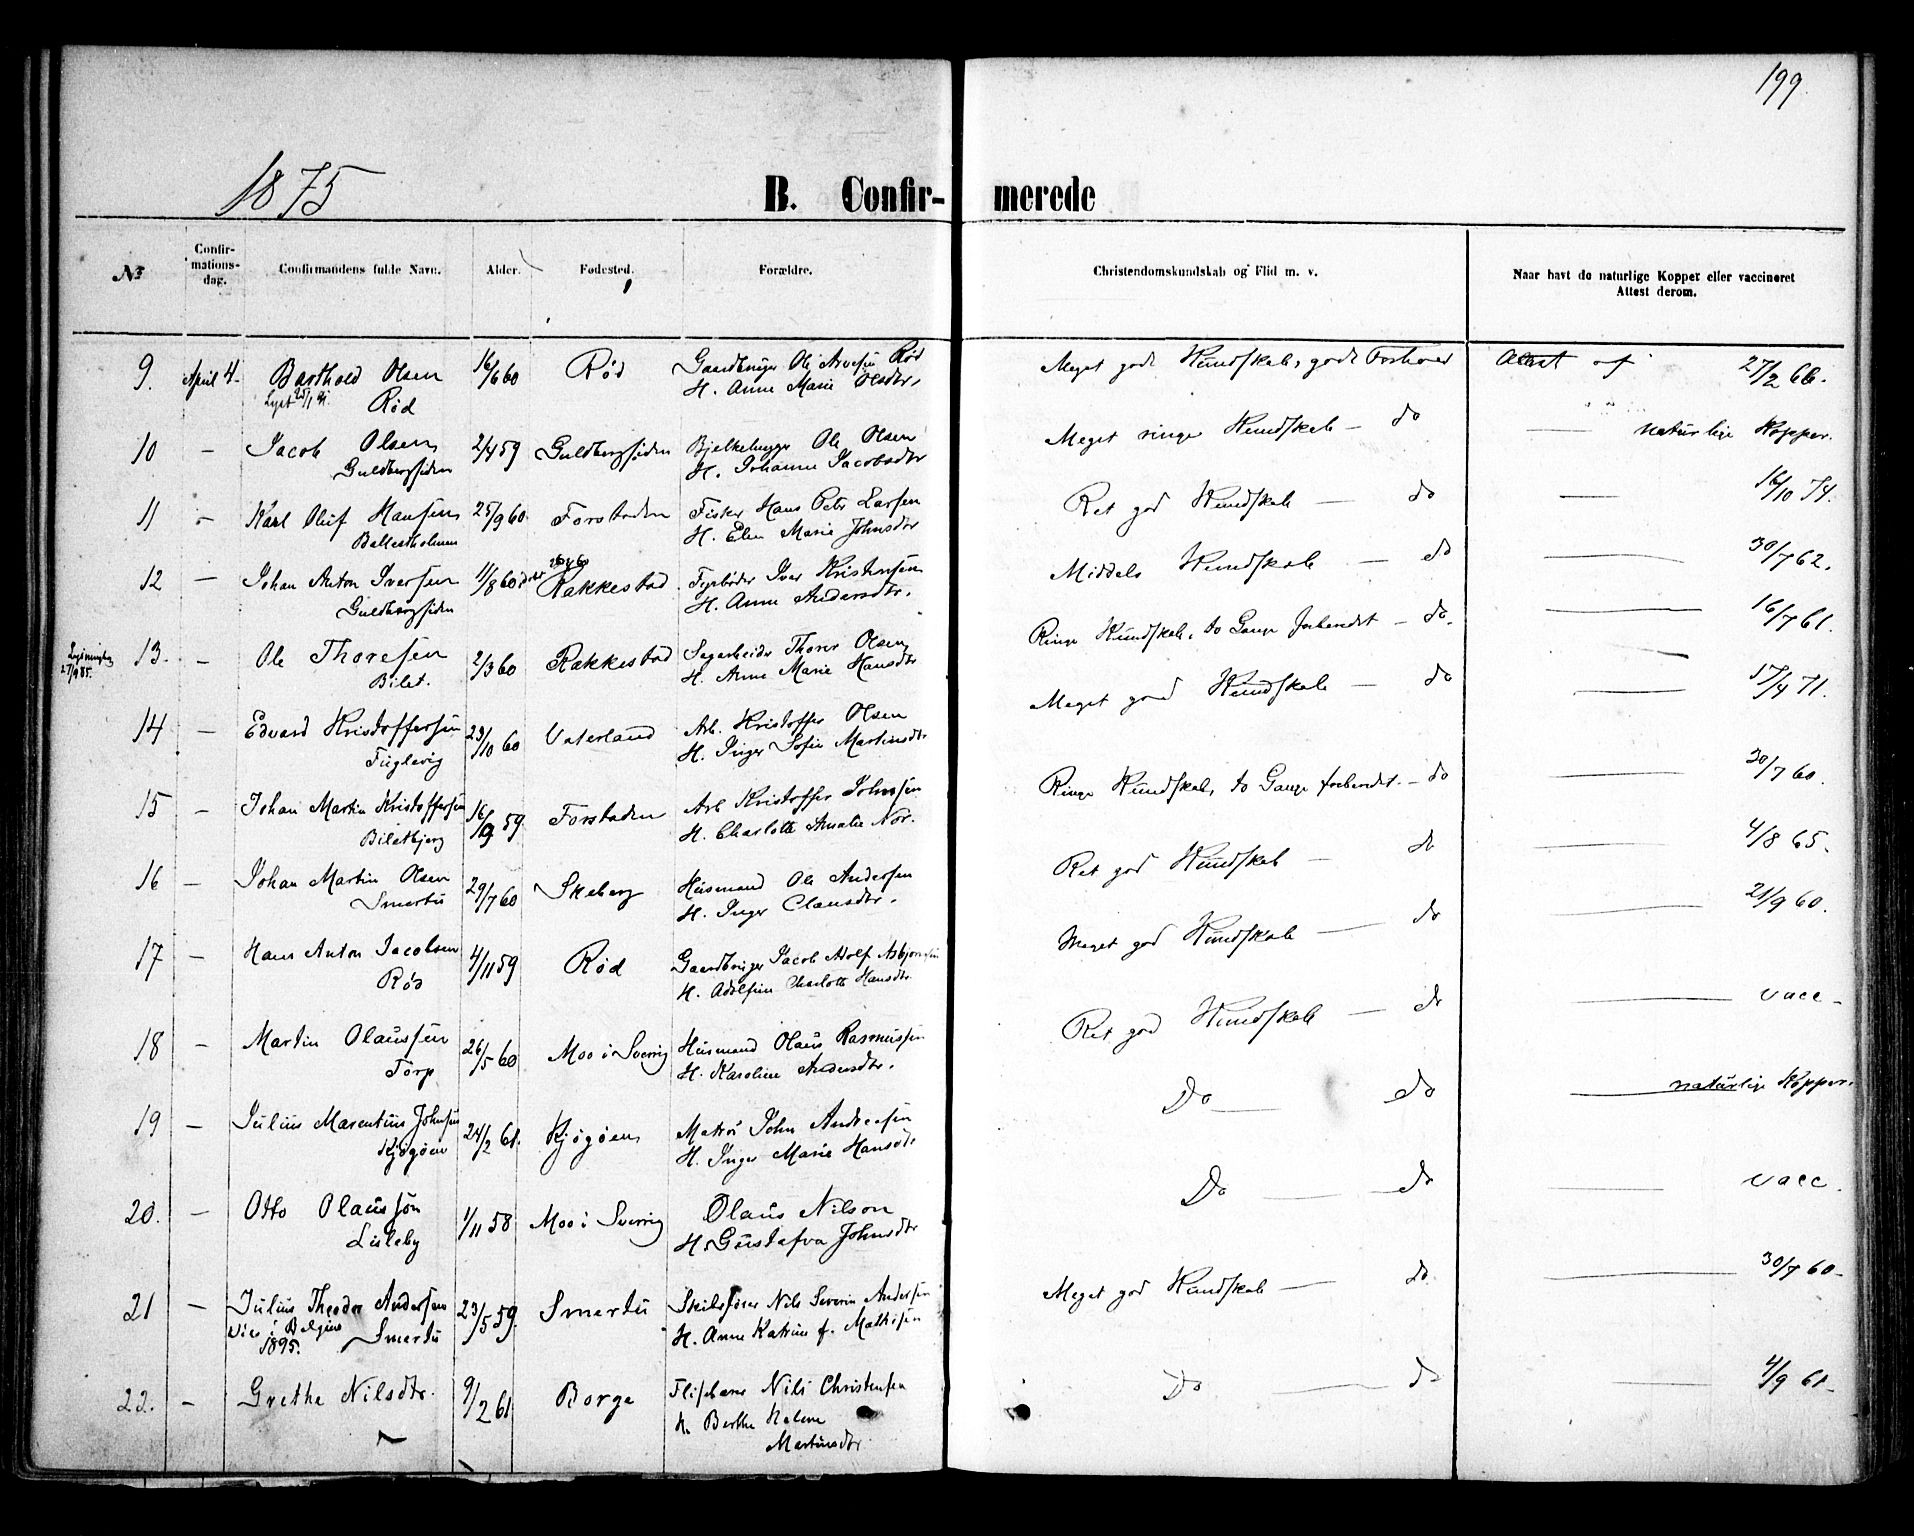 199
1875
B. Confir- merede
№
Confir-
mations-
dag.
Confirmandens fulde Navn.
Alder.
Fødested.
Forældre.
Christendomskundskab og Flid m. v.
Naar havt de naturlige Kopper eller vaccineret
Attest derom.
9. April 4. Barthold Olsen 16/6 60 Rød Gaardbruger Ole Arvesen Rød Meget godt Kundskab, godt Forhold Attest af 27/2 66.
Lyst 25/1 91. Rød H. Anne Marie Olsdtr.
10 – Jacob Olsen 2/4 59 Guldbergsiden Bjelkehugger Ole Olsen Meget ringe Kundskab – do — naturlige Kopper.
Guldbergsiden H. Johanne Jacobsdtr
11 – Karl Oluf Hansen 25/9 60. Forstaden Fisker Hans Peter Larsen Ret god Kundskab — do — 16/10 74.
H. Elen Marie Johnsdtr
12 – Johan Anton Iversen 11/8 60 Rakkestad Fyrbøder Iver Kristensen Middels Kundskab — do — 30/7 62.
Guldbergsiden H. Anne Andersdtr.
13. – Ole Thoresen 2/3 60 Rakkestad Sagarbeider Thorer Olsen Ringe Kundskab, to Gange forberedt – do. — 16/7 61.
27/9 85. Bilet. H. Anne Marie Hansdtr
14 – Edvard Kristoffersen 23/10 60 Vaterland Arb. Kristoffer Olsen Meget god Kundskab — do — 17/4 71.
Fuglevig H. Inger Sofie Martinsdtr
15 – Johan Martin Kristoffersen 16/9 59. Forstaden Arb Kristoffer Johnsen Ringe Kundskab, to Gange forberedt. – do — 30/7 60.
Biletbjerg H. Charlotte Amalie Nor.
16 – Johan Martin Olsen 29/7 60 Skeberg Husmand Ole Andersen Ret god Kundskab — do — 4/8 65.
Smertu H. Inger Clausdtr.
17 – Hans Anton Jacobsen 4/11 59 Rød Gaardbruger Jacob Adolf Asbjørnsen Meget god Kundskab — do — 21/9 60.
Rød H. Adolfine Charlotte Hansdtr
18 – Martin Olaussen 26/5 60 Moo i Sverrig Husmand Olaus Rasmussen Ret god Kundskab — do — vacc –
Torp H. Karoline Andersdtr.
19 – Julius Marentius Johnsen 24/2 61. Kjøgøen Matros John Andreasen Do — do — naturlige Kopper.
Kjøgøen H. Inger Marie Hansdtr
20. – Otto Olausson 1/11 58 Moo i Sverrig Olaus Nilson Do — do — vacc.
Lisleby H. Gustafva Johnsdtr
21 – Julius Theodor Andersen 23/5 59. Smertu Skibsfører Nils Severin Andersen Meget god Kundskab — do. — 30/7 60–
i Belgien Smertu H. Anne Katrine f. Mathisen
1895.
22. – Grethe Nilsdtr. 9/2 61 Borge Nils Christensen Do — do — 4/9 61–
H. Berthe Helene
Martinsdtr